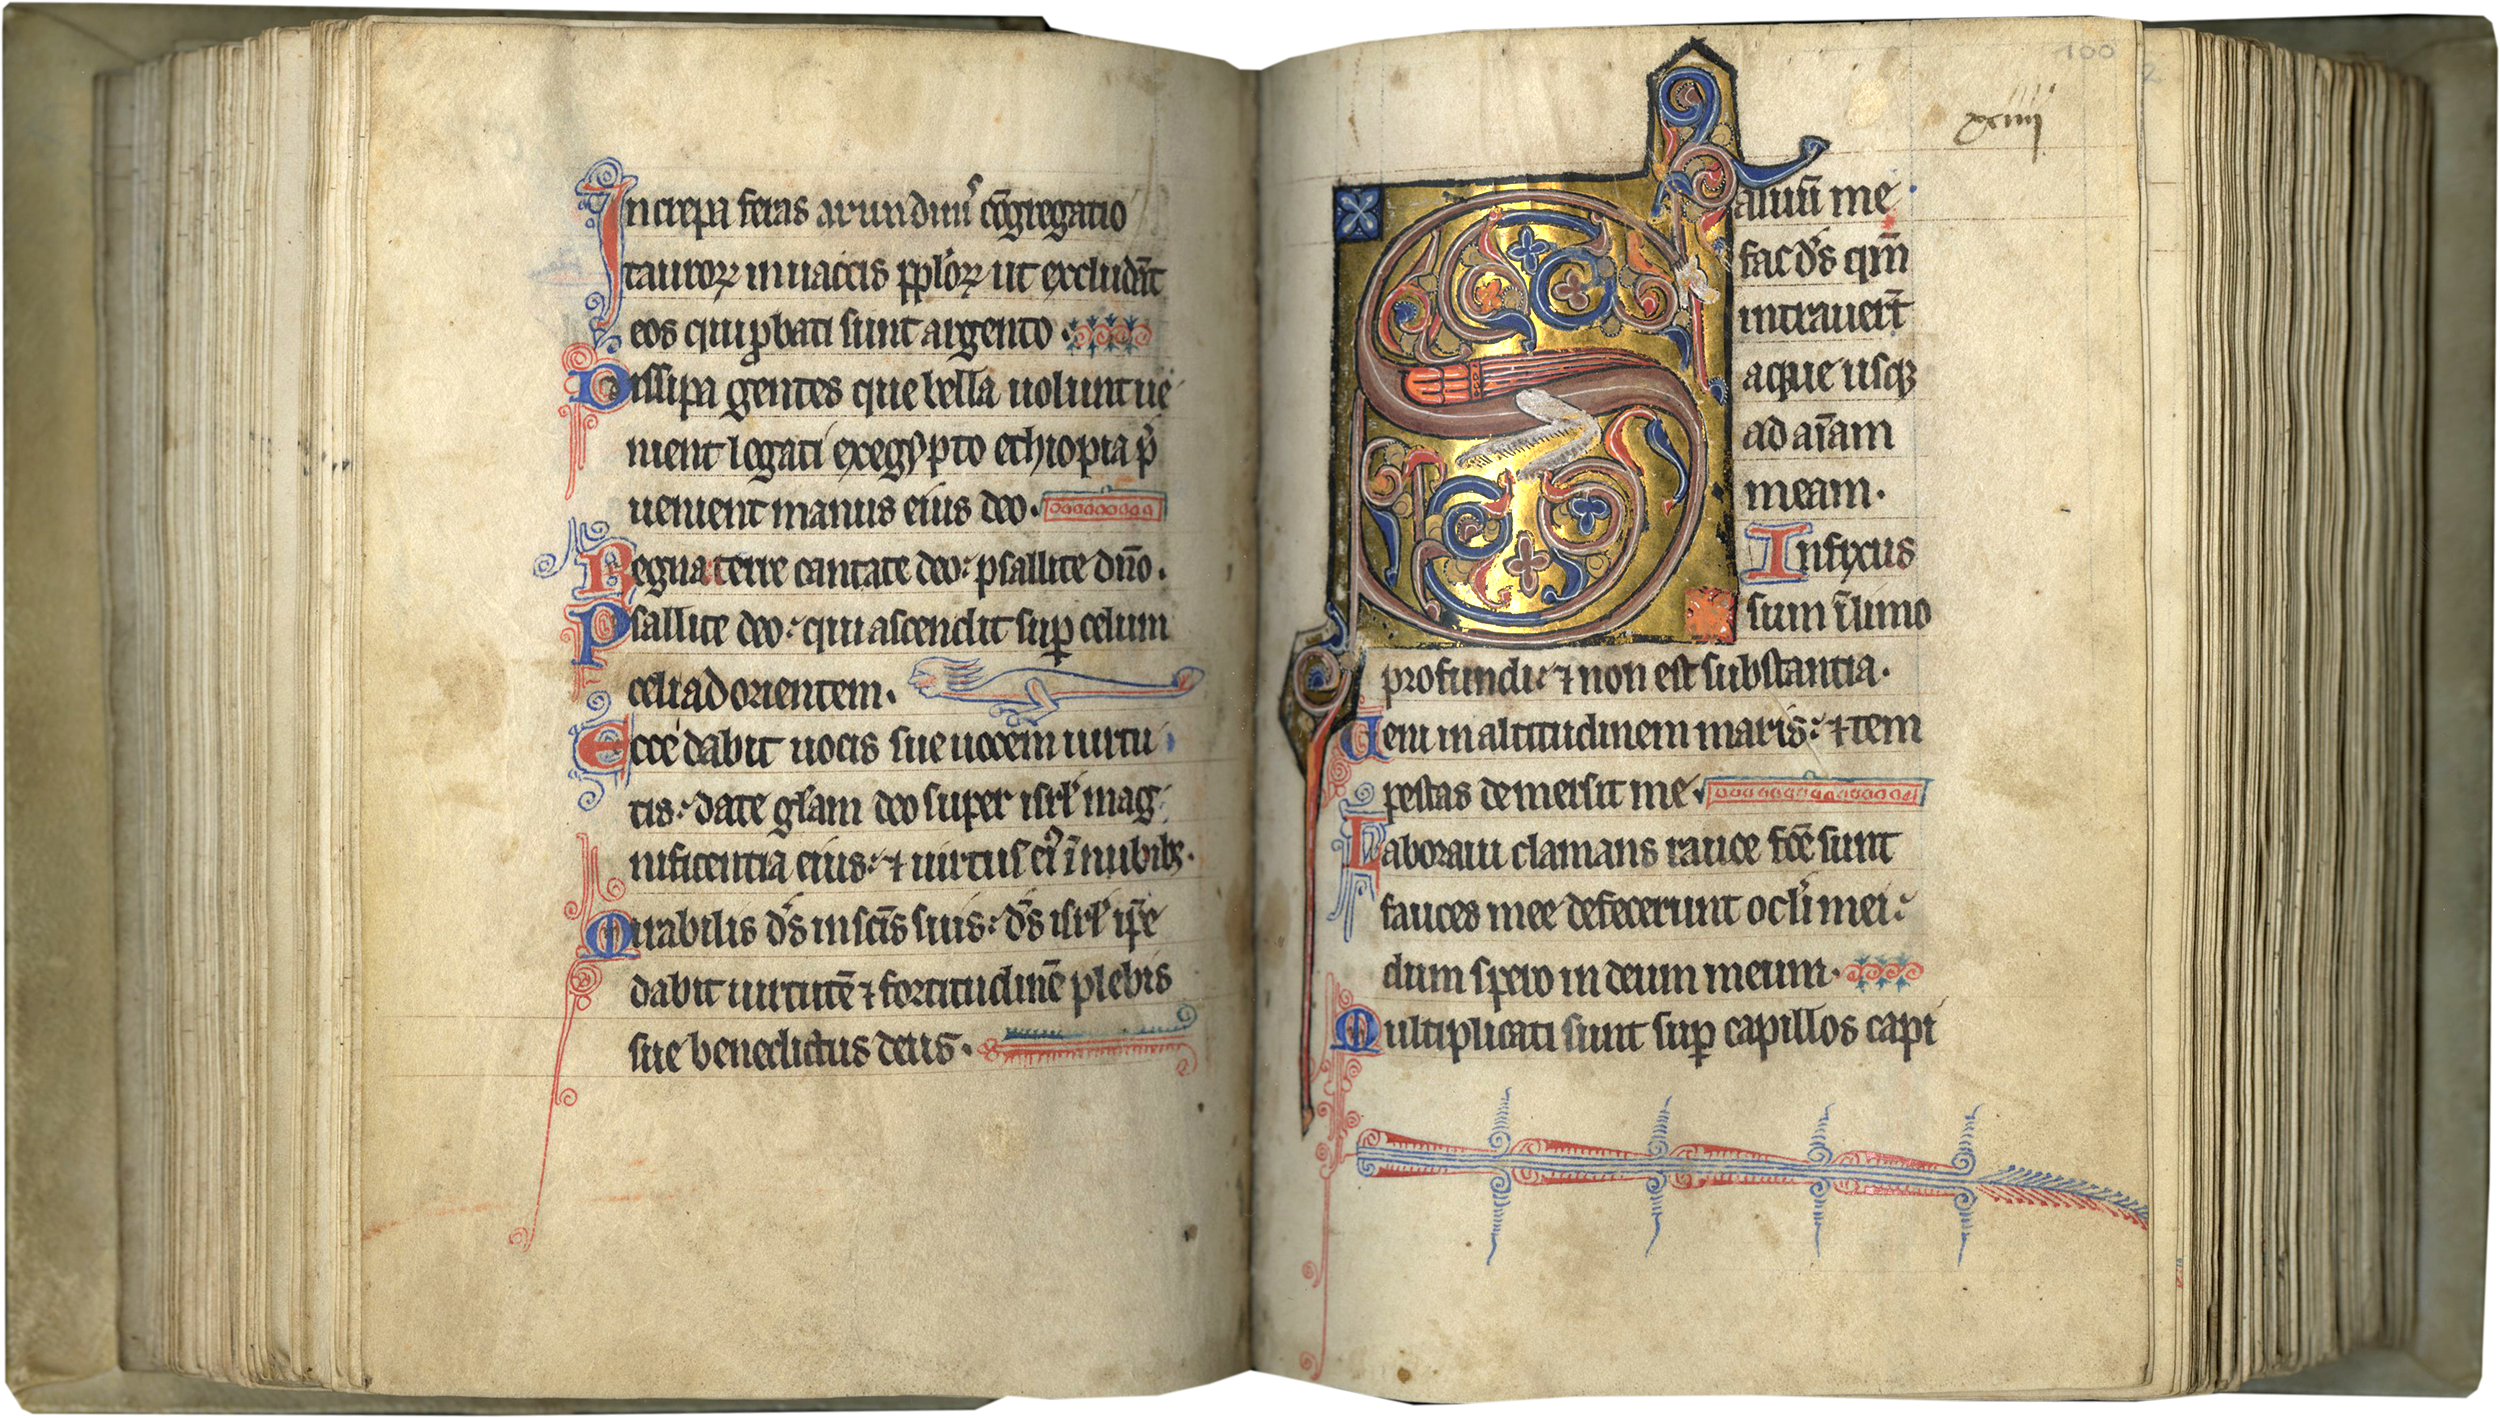 Increpa feras arundinis cōgregatio
tauroꝝ in uaccis pplōꝝ ut excludāt
eos qui ꝓbati sunt argento.
Dissipa gentes que bella uolunt ue
nient legati ex egypto ethiopia p̄
ueniet manus eius deo.
Regna terre cantate deo: psallite dn̄o.
Psallite deo: qui ascendit suꝑ celum
celi ad orientem.
Ecce dabit uocis sue uocem uirtu
tis: date gl̄am deo super isrl̄ mag
nificentia eius: ⁊ uirtus ei᷒ ī nubibꝫ.
Mirabilis d̄s in sc̄is suis: d̄s isrl̄ ip̄e
dabit uirtutē ⁊ fortitudinē plebis
sue benedictus deus.
100
xciiii
Saluū me
fac d̄s qm̄
intrauer̄t
aque usqꝫ
ad aīam
meam.
Infixus
sum ī limo
profundi: ⁊ non est substantia.
Ueni in altitudinem maris: ⁊ tem
pestas demersit me
Laboraui clamans rauce fc̄e sunt
fauces mee defecerunt ocl̄i mei:
dum spero in deum meum.
Multiplicati sunt suꝑ capillos capi